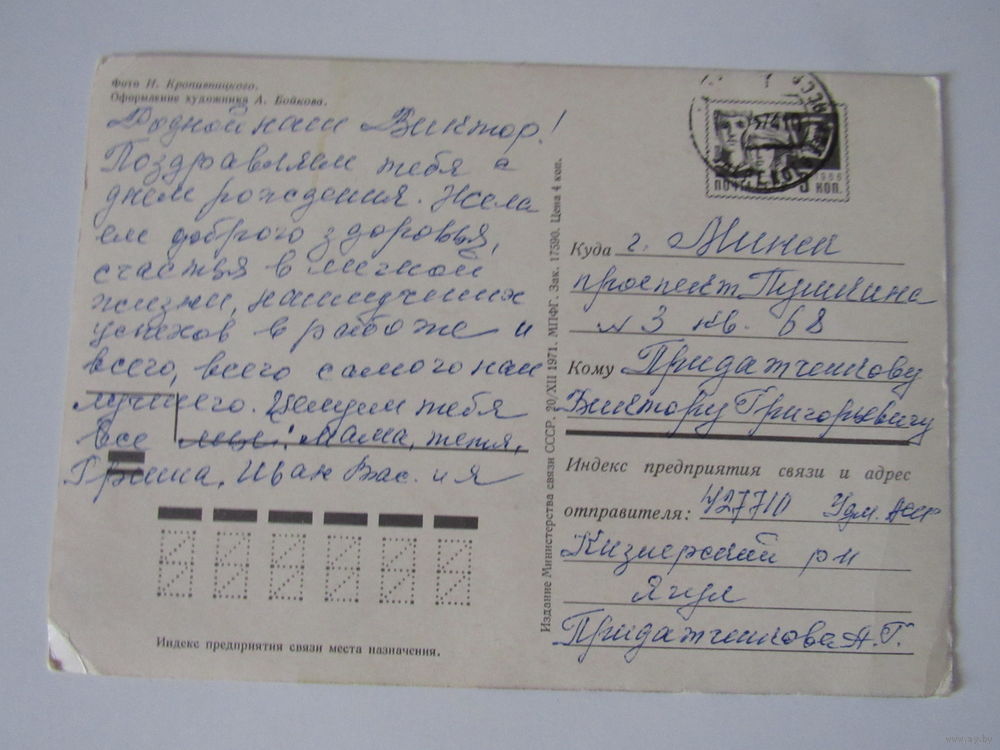 Фото И. Кропивницкого.
Оформление художника А. Бойкова.
Родной наш Виктор!
Поздравляем тебя с
днем рождения. Жела
ем доброго здоровья,
счастья в личной
жизни, наилучших
успехов в работе и
всего, всего самого наи
лучшего. Целуем тебя
все Мама, тетя,
Гриша, Иван Вас. и я
Индекс предприятия связи места назначения.
Издание Министерства связи СССР. 20/XII 1971. МПФГ. Зак. 17590. Цена 4 коп.
ПОЧТА 1966
3 КОП.
Куда г. Минск
проспект Пушкина
№ 3 кв. 68
Кому Придатченкову
Виктору Григорьевичу
Индекс предприятия связи и адрес
отправителя: 427710 Удм. АССР
Кизнерский р-н
Ягул
Придатченкова А. Г.
www.ay.by